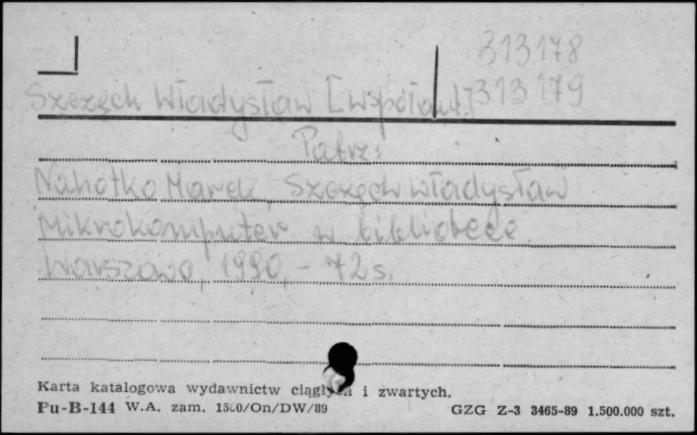 313178
Szczęch Władysław [współaut.] 313179
Patrz:
Nahotko Marek, Szczęch Władysław
Mikrokomputer w bibliotece.
Warszawa, 1990, - 72 s.
Karta katalogowa wydawnictw ciągłych i zwartych.
Pu-B-144 W.A. zam. /On/DW/89 GZG Z-3 3465-89 1.500.000 szt.